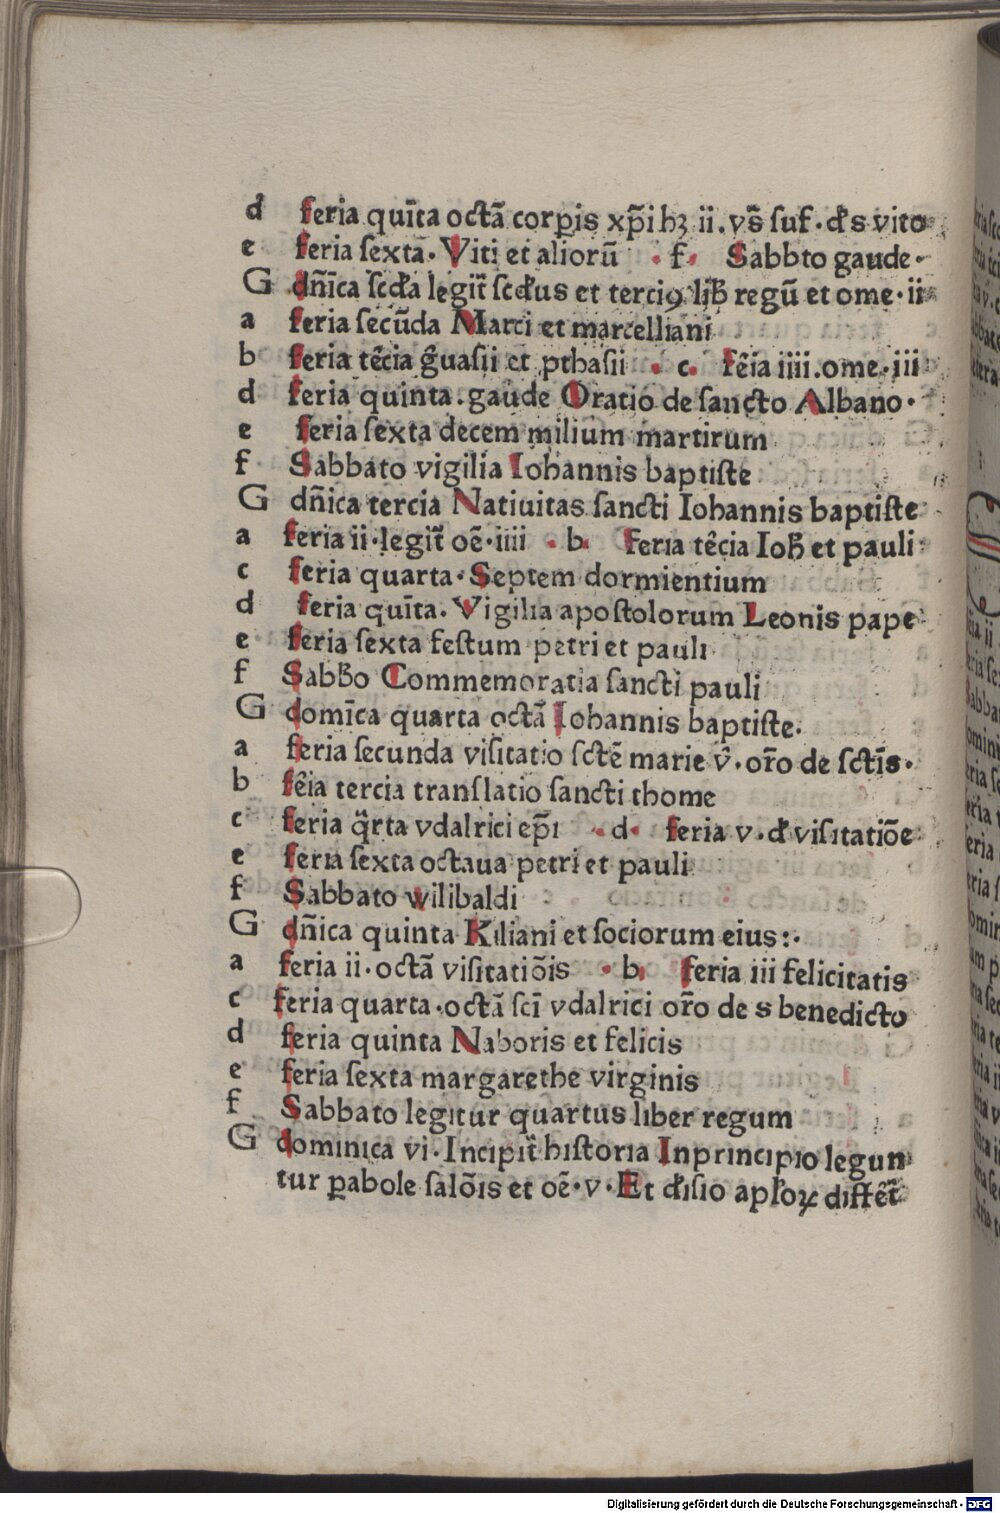 d feria quīta octā corꝑis xp̄i hꝫ ii. vs̄ suf. ds vito
e feria sexta. Viti et aliorū • f • Sabbto gaude.
G dn̄ica scd̄a legit̄ scd̄us et terciꝰ lib̄ regū et ome. ii
a feria secūda Marci et marcelliani
b feria tēcia ḡuasii et ꝓthasii • c • Fēia iiii. ome. iii
d feria quinta. gaude Oratio de sancto Albano.
e feria sexta decem milium martirum
f Sabbato vigilia Iohannis baptiste
G dn̄ica tercia Natiuitas sancti Iohannis baptiste
a feria ii. legit̄ oē. iiii • b • Feria tēcia Ioh̄ et pauli
c feria quarta. Septem dormientium
d feria quīta. Vigilia apostolorum Leonis pape
e feria sexta festum petri et pauli
f Sabb̄o Commemoratia sancti pauli
G domīca quarta octā Iohannis baptiste.
a feria secunda visitatio sctē marie v̄. or̄o de sctīs.
b fēia tercia translatio sancti thome
c feria q̄rta vdalrici ep̄i • d • feria v. d visitatiōe
e feria sexta octaua petri et pauli
f Sabbato wilibaldi
G dn̄ica quinta Kiliani et sociorum eius:.
a feria ii. octā visitatiōis • b • feria iii felicitatis
c feria quarta. octā scī vdalrici or̄o de s benedicto
d feria quinta Naboris et felicis
e feria sexta margarethe virginis
f Sabbato legitur quartus liber regum
G dominica vi. Incipit̄ historia Inprincipio legun
tur ꝑabole salōis et oē. v. Et d̄isio apl̄oꝝ differt̄
Digitalisierung gefördert durch die Deutsche Forschungsgemeinschaft - DFG